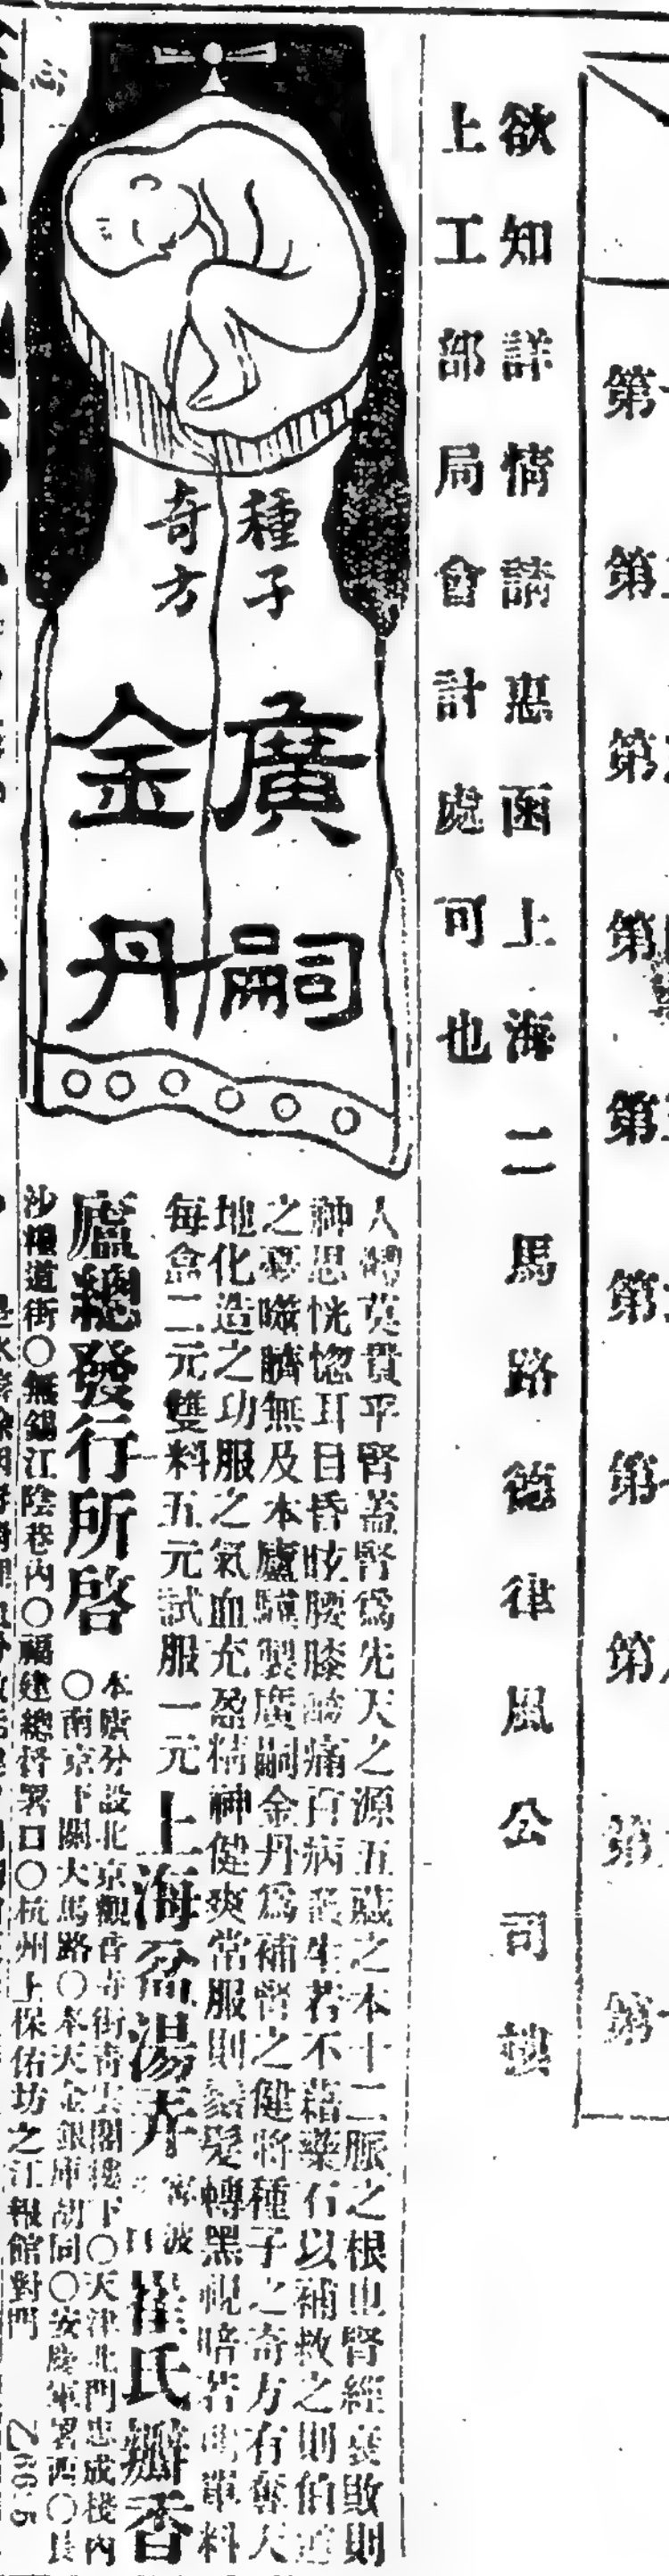 欲知詳情請惠函上海二馬路德律風公司或
上工部局會計處可也
種子
奇方
廣嗣
金丹
人體莫貴乎腎蓋腎爲先天之源五臟之本十二脈之根也腎經衰敗則
神思恍惚耳目昏眩腰膝痛百病叢生若不藉藥石以補救之則伯道
之憂噬臍無及本廬驗製廣嗣金丹爲補腎之健將種子之奇方有奪天
地化造之功服之氣血充盈精神健爽常服則鬚髮轉黑視暗若明單料
每盒二元雙料五元試服一元 上海盆湯弄 寧波 口 崔氏瓣香
廬總發行所啓 本廬分設北京觀音寺街青雲閣樓下〇天津北門忠成棧內
〇南京下關大馬路〇奉天金銀庫胡同〇安慶軍署西〇長
沙糧道街〇無錫江陰巷內〇福建總督署口〇杭州上保佑坊之江報館對門
Z66.5
第
第
第
第
第
第
第
第
第
第